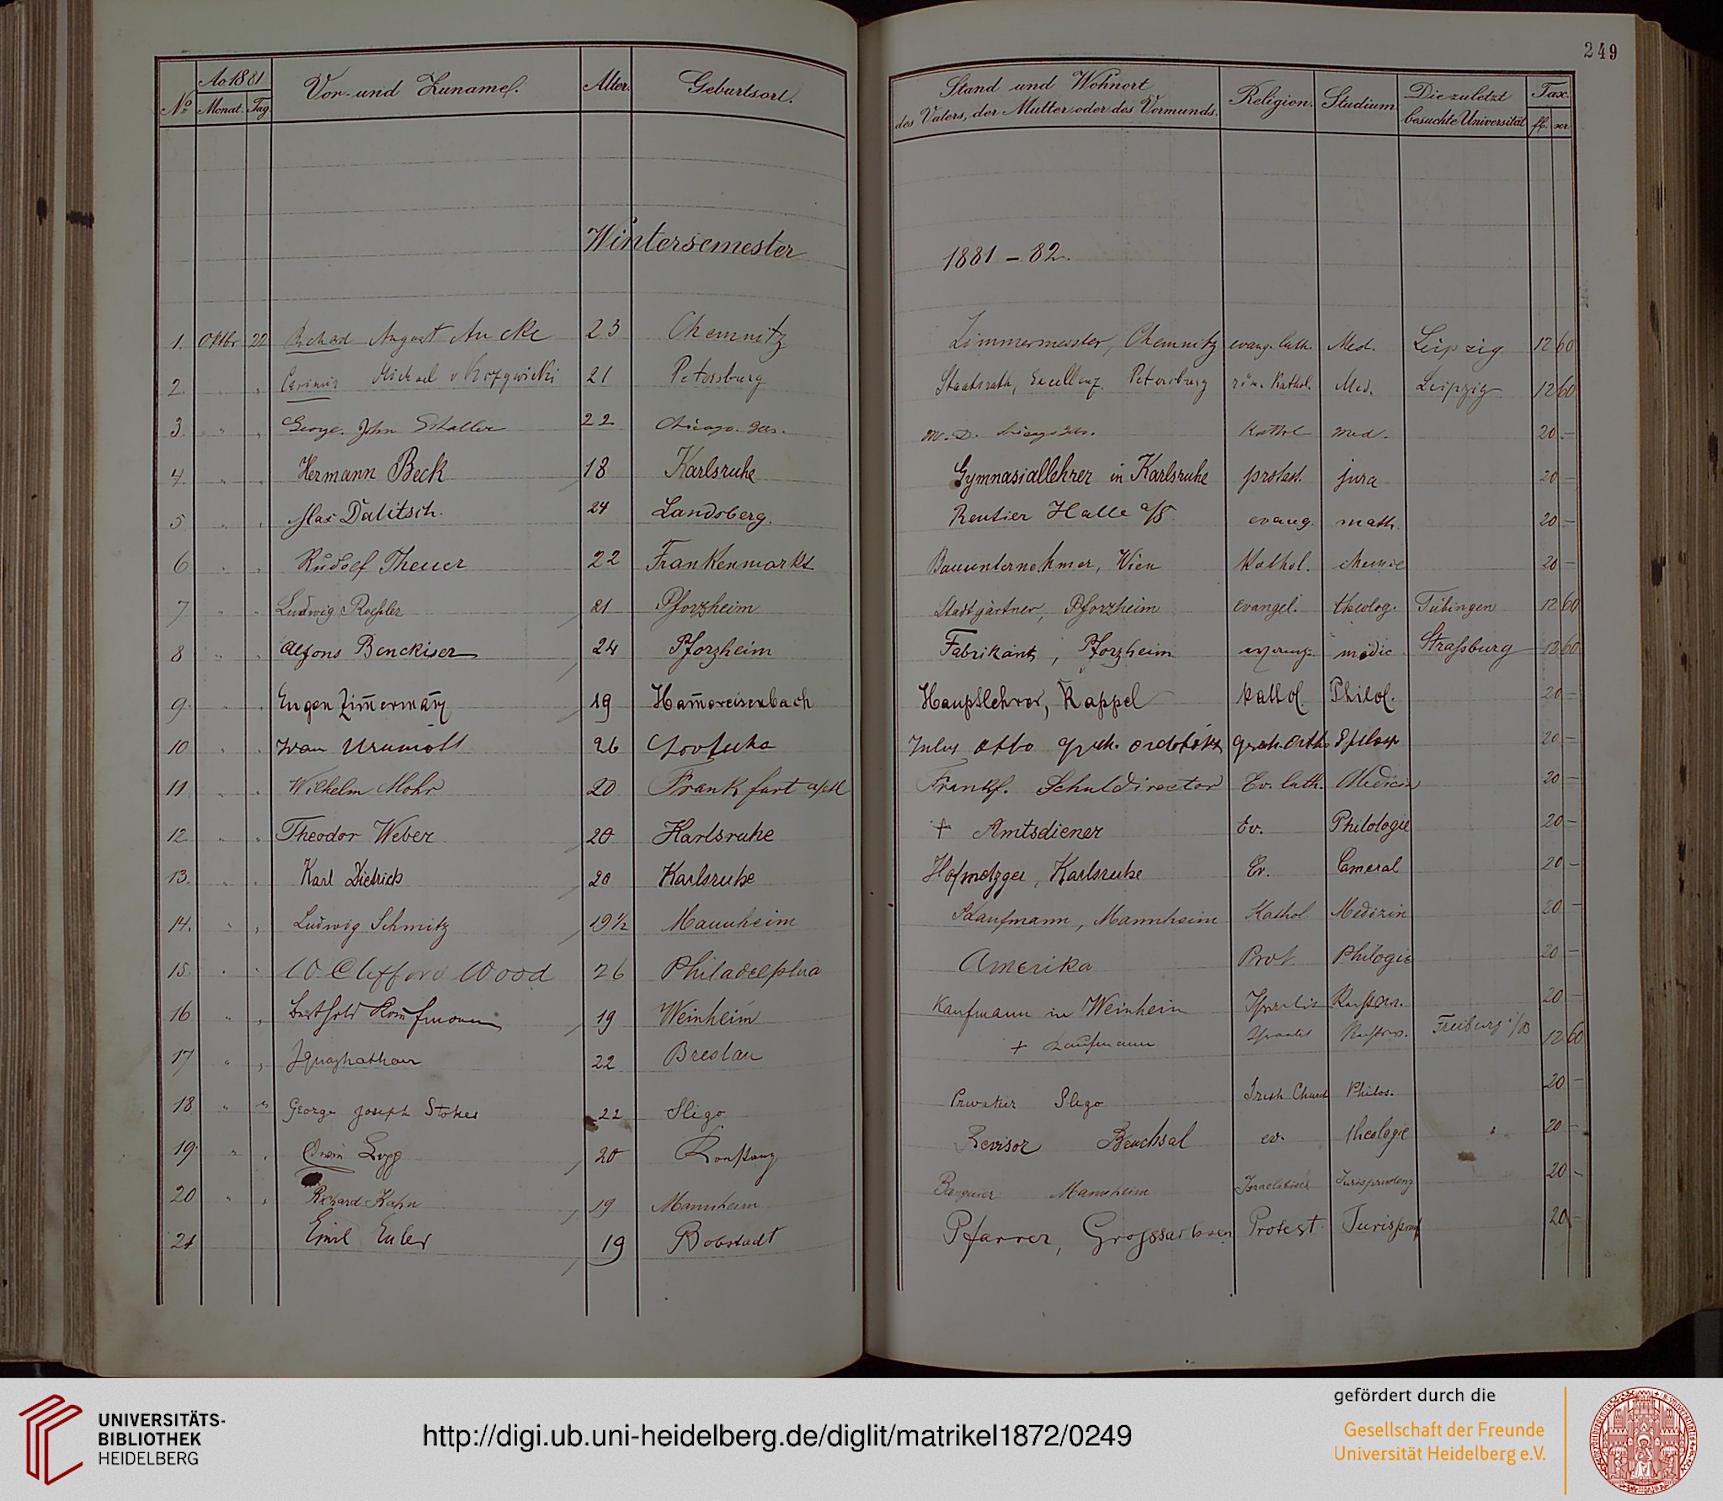 249
Ao. 1881
No Monat. Tag Vor- und Zuname. Alter. Geburtsort. Stand und Wohnort des Vaters, der Mutter oder des Vormunds. Religion. Studium Die zuletzt besuchte Universität Tax. fl. xr
Wintersemester 1881 – 82.
1. Oktbr. 22 Richard August Aucke 23 Chemnitz Zimmermeister, Chemnitz evang. luth. Med. Leipzig 12 60
2. " Michael v 21 Petersburg Staatsrath, Excellenz, Petersburg röm. Kathol. Med. Leipzig 12 60
3. " " George John 22 Chicago. Ills. M. D. Chicago Ills. Kathol med. 20 –
4. " " Hermann Beck 18 Karlsruhe Gymnasiallehrer in Karlsruhe protest. jura 20 –
5 " " Max Dalitsch. 24 Landsberg. Rentier Halle a/S evang. math. 20 –
6 " " Rudolf Theuer 22 Frankenmarkt Bauunternehmer, Wien Kathol. chemie 20 –
7 " " Ludwig Roeßler 21 Pforzheim Stadtgärtner, Pforzheim evangel. theolog. Tübingen 12 60
8 " " Alfons Benckiser 24 Pforzheim Fabrikant, Pforzheim medic Straßburg 12 60
9. " " Eugen Zim̄erman̄ 19 Ham̄ereisenbach Hauptlehrer, Kappel kathol. Philol. 20 –
10 " " Iwan 26 griech. orth. 20 –
11 " " Wilhelm Mohr 20 Frankfurt a/M Frankf. Schuldirector Ev. luth. Medicin 20 –
12 " " Theodor Weber 20 Karlsruhe † Amtsdiener Ev. Philologie 20 –
13. " " Karl Dietrich 20 Karlsruhe Hofmetzger, Karlsruhe Ev. Cameral 20 –
14. " " Ludwig Schmitz 19½ Mannheim Kaufmann, Mannheim Kathol Medizin 20 –
15 " " W Clifford Wood 26 Philadelphia Amerika Prot Philogie 20 –
16 " " Berthold 19 Weinheim Kaufmann in Weinheim 20 –
17 " " 22 Breslau † Kaufmann Freiburg i/B 12 60
18 " " George Joseph Stokes 22 Sligo Sligo Irish Church Philos. 20 –
19. " " 20 Konstanz Revisor Bruchsal ev. theologie 20 –
20 " " Richard Kahn 19 Mannheim Mannheim Jurisprudenz 20 –
21 Emil Euler 19 Bobstadt Pfarrer, Grosssachsen Protest. 20 –
UNIVERSITÄTS-
BIBLIOTHEK
HEIDELBERG
http://digi.ub.uni-heidelberg.de/diglit/matrikel1872/0249
gefördert durch die
Gesellschaft der Freunde
Universität Heidelberg e.V.